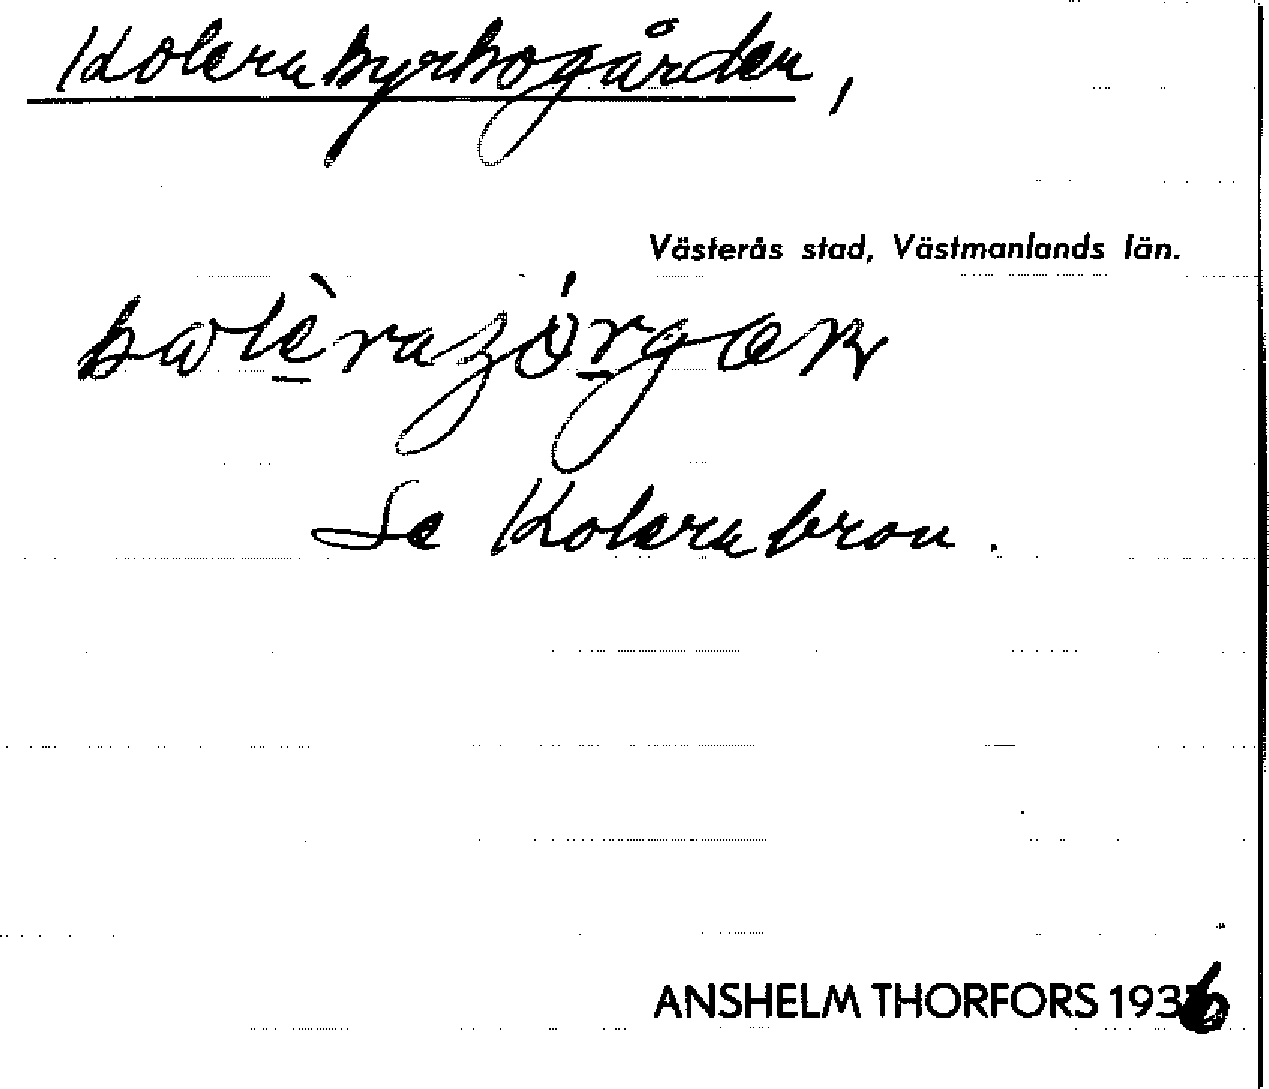 Kolerakyrkogården,
Västerås stad, Västmanlands län.
Se Kolerabron.
ANSHELM THORFORS 1936